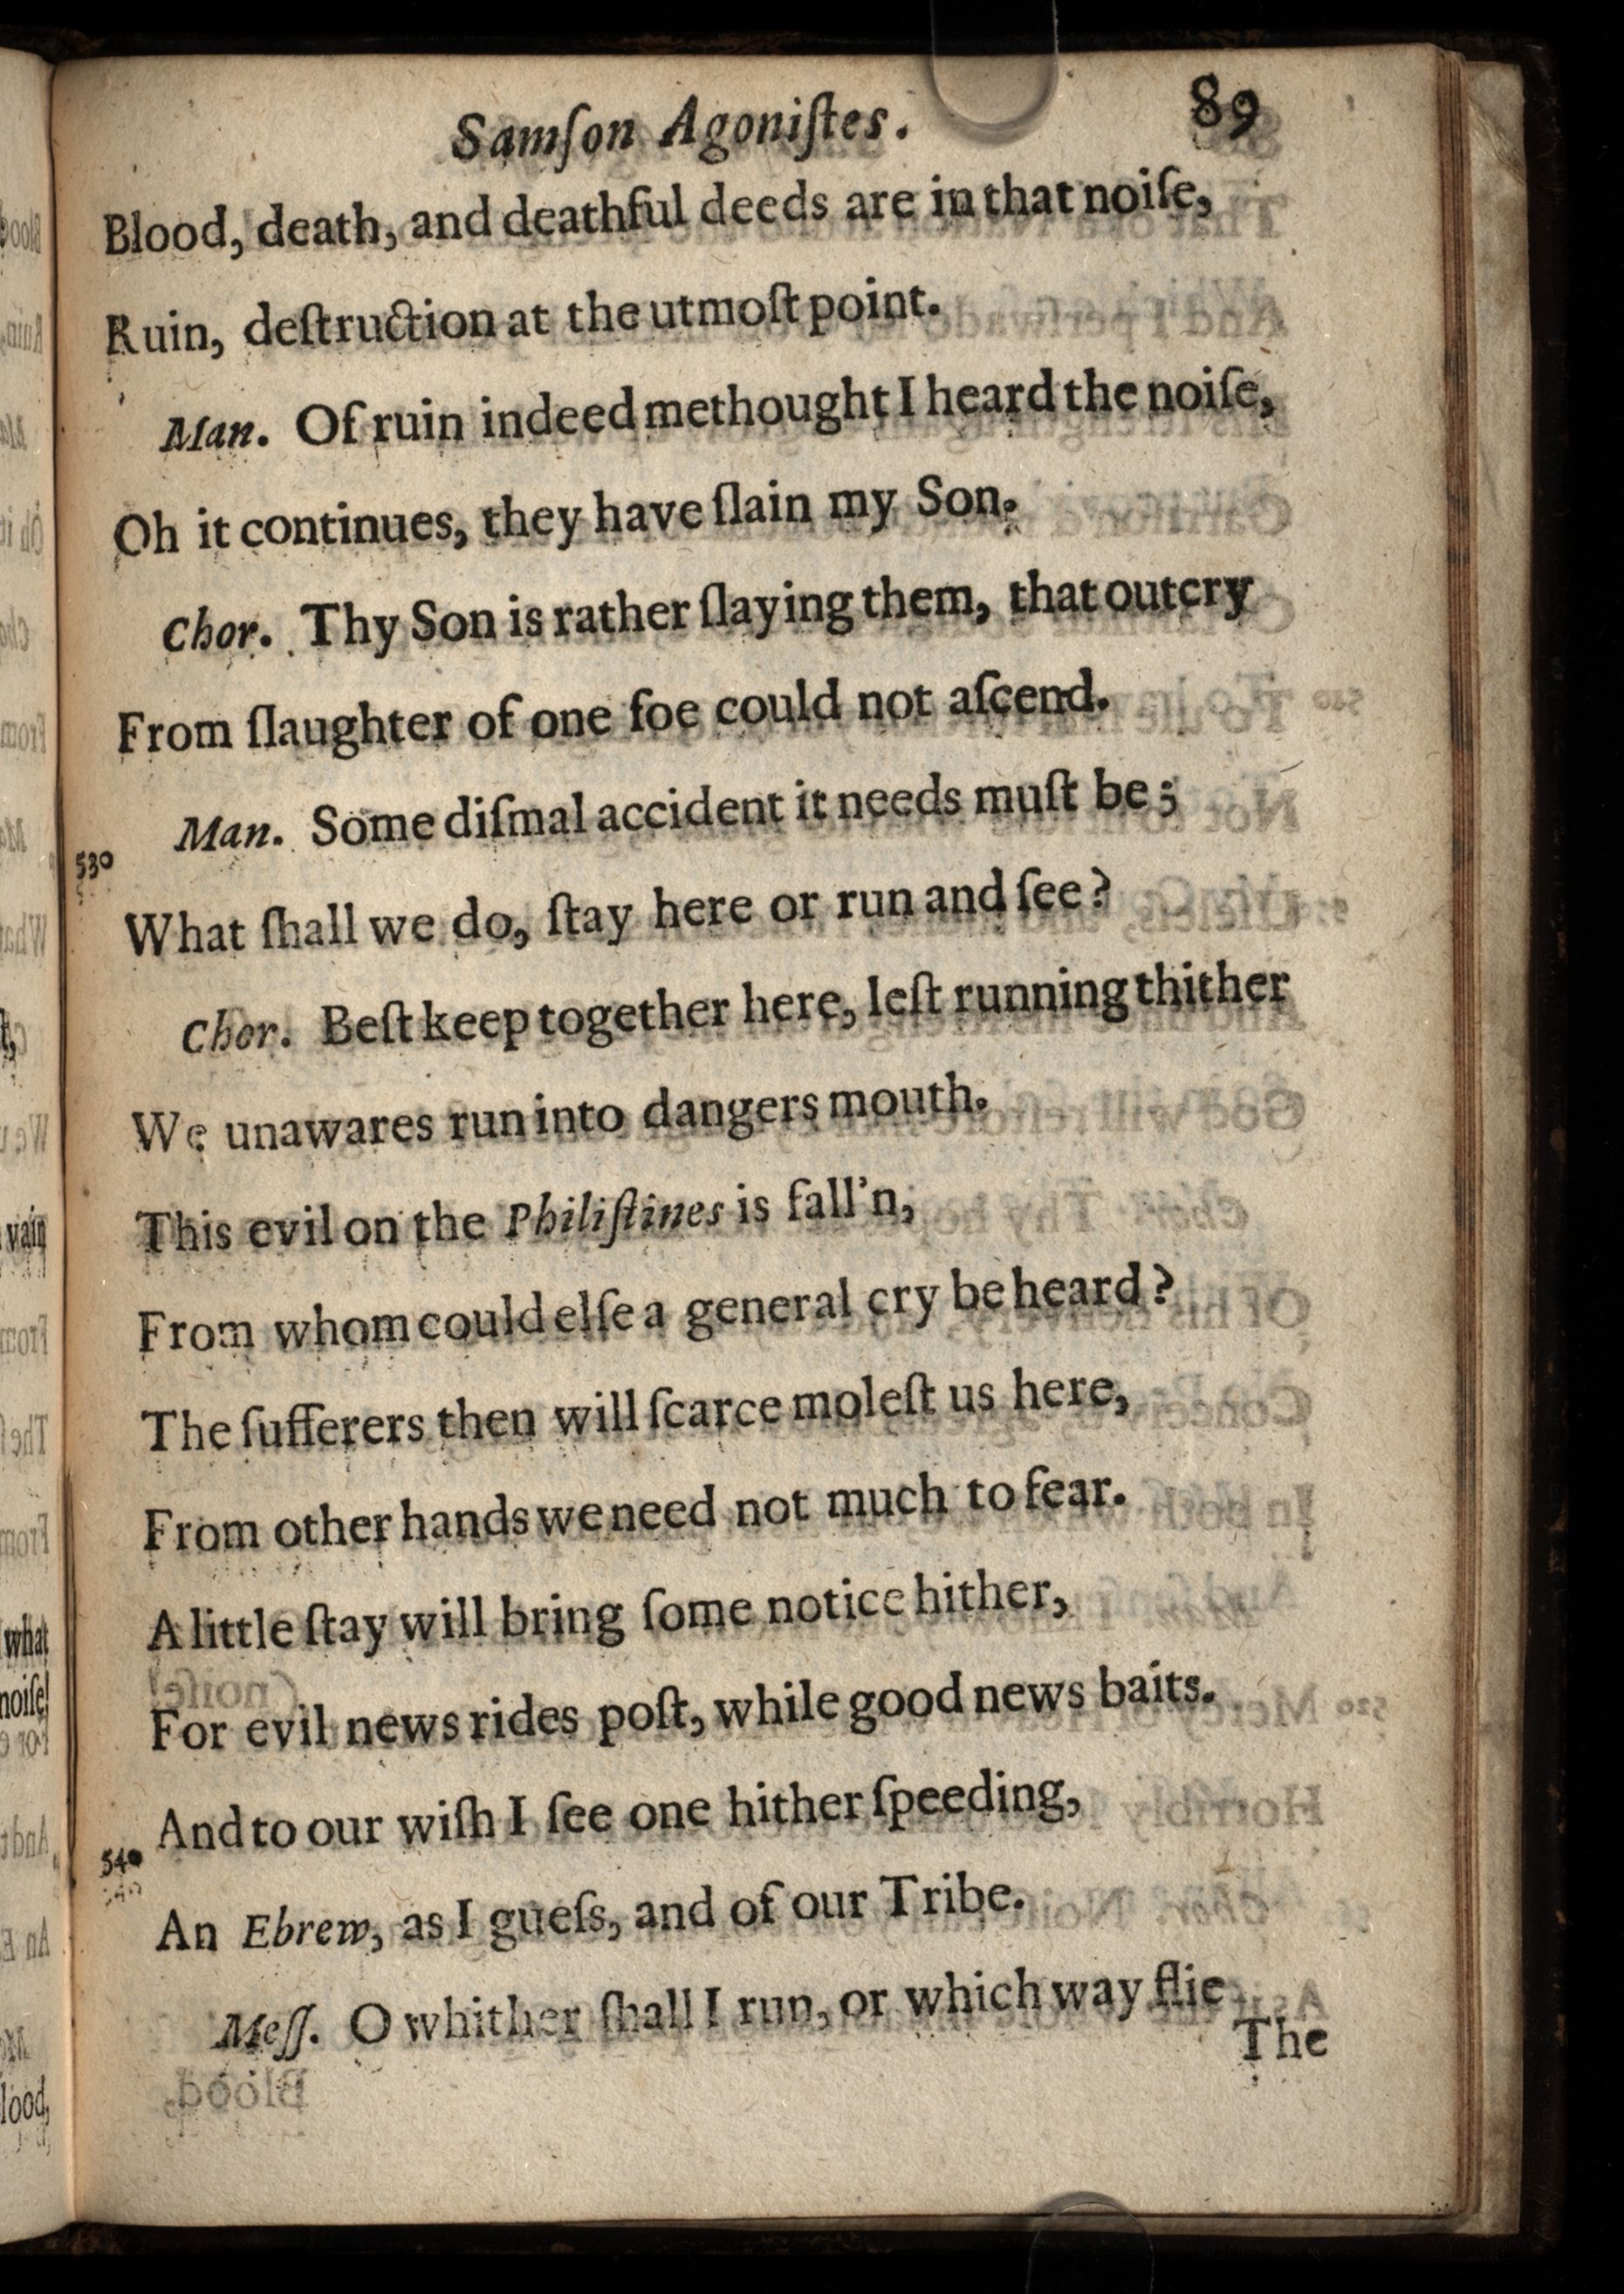 Samſon Agoniſtes. 89
Blood, death, and deathful deeds are in that noiſe,
Ruin, deſtruction at the utmoſt point.
Man. Of ruin indeed methought I heard the noiſe,
Oh it continues, they have ſlain my Son.
Chor. Thy Son is rather ſlaying them, that outcry
From ſlaughter of one foe could not aſcend.
Man. Some diſmal accident it needs muſt be;
530
What ſhall we do, ſtay here or run and ſee?
Chor. Beſt keep together here, leſt running thither
We unawares run into dangers mouth.
This evil on the Philiſtines is fall'n,
From whom could elſe a general cry be heard?
The ſufferers then will ſcarce moleſt us here,
From other hands we need not much to fear.
A little ſtay will bring ſome notice hither,
For evil news rides poſt, while good news baits.
And to our wiſh I ſee one hither ſpeeding,
540
An Ebrew, as I gueſs, and of our Tribe.
Meſſ. O whither ſhall I run, or which way flie
The